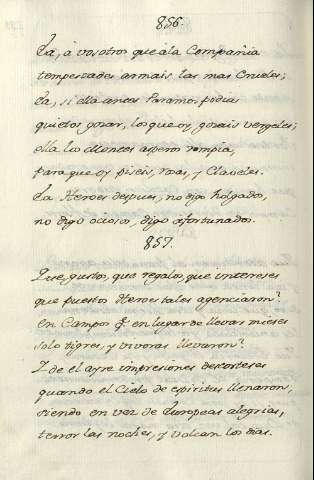 856.
Ea, á vosotros que ála Compañia
tempestades armais las mas Crueles;
Ea, si ella antes Paramos podia
quietos gozar, los que oy gozais vergeles;
ella los Montes asperos rompia,
para que oy piseis, rosas, y Claveles.
Ea Heroes despues, no digo holgados,
no digo ociosos, digo afortunados.
857.
Que gustos, que regalos, que intereses
que puestos Heroes tales agenciaron?
en Campos q̃ en lugar de llevar mieses
solo tigres, y vivoras llevaron?
Y de el ayre impresiones descorteses
quando el Cielo de espiritus llenaron,
siendo en vez de Europeas alegrias,
terror las noches, y volcan los dias.